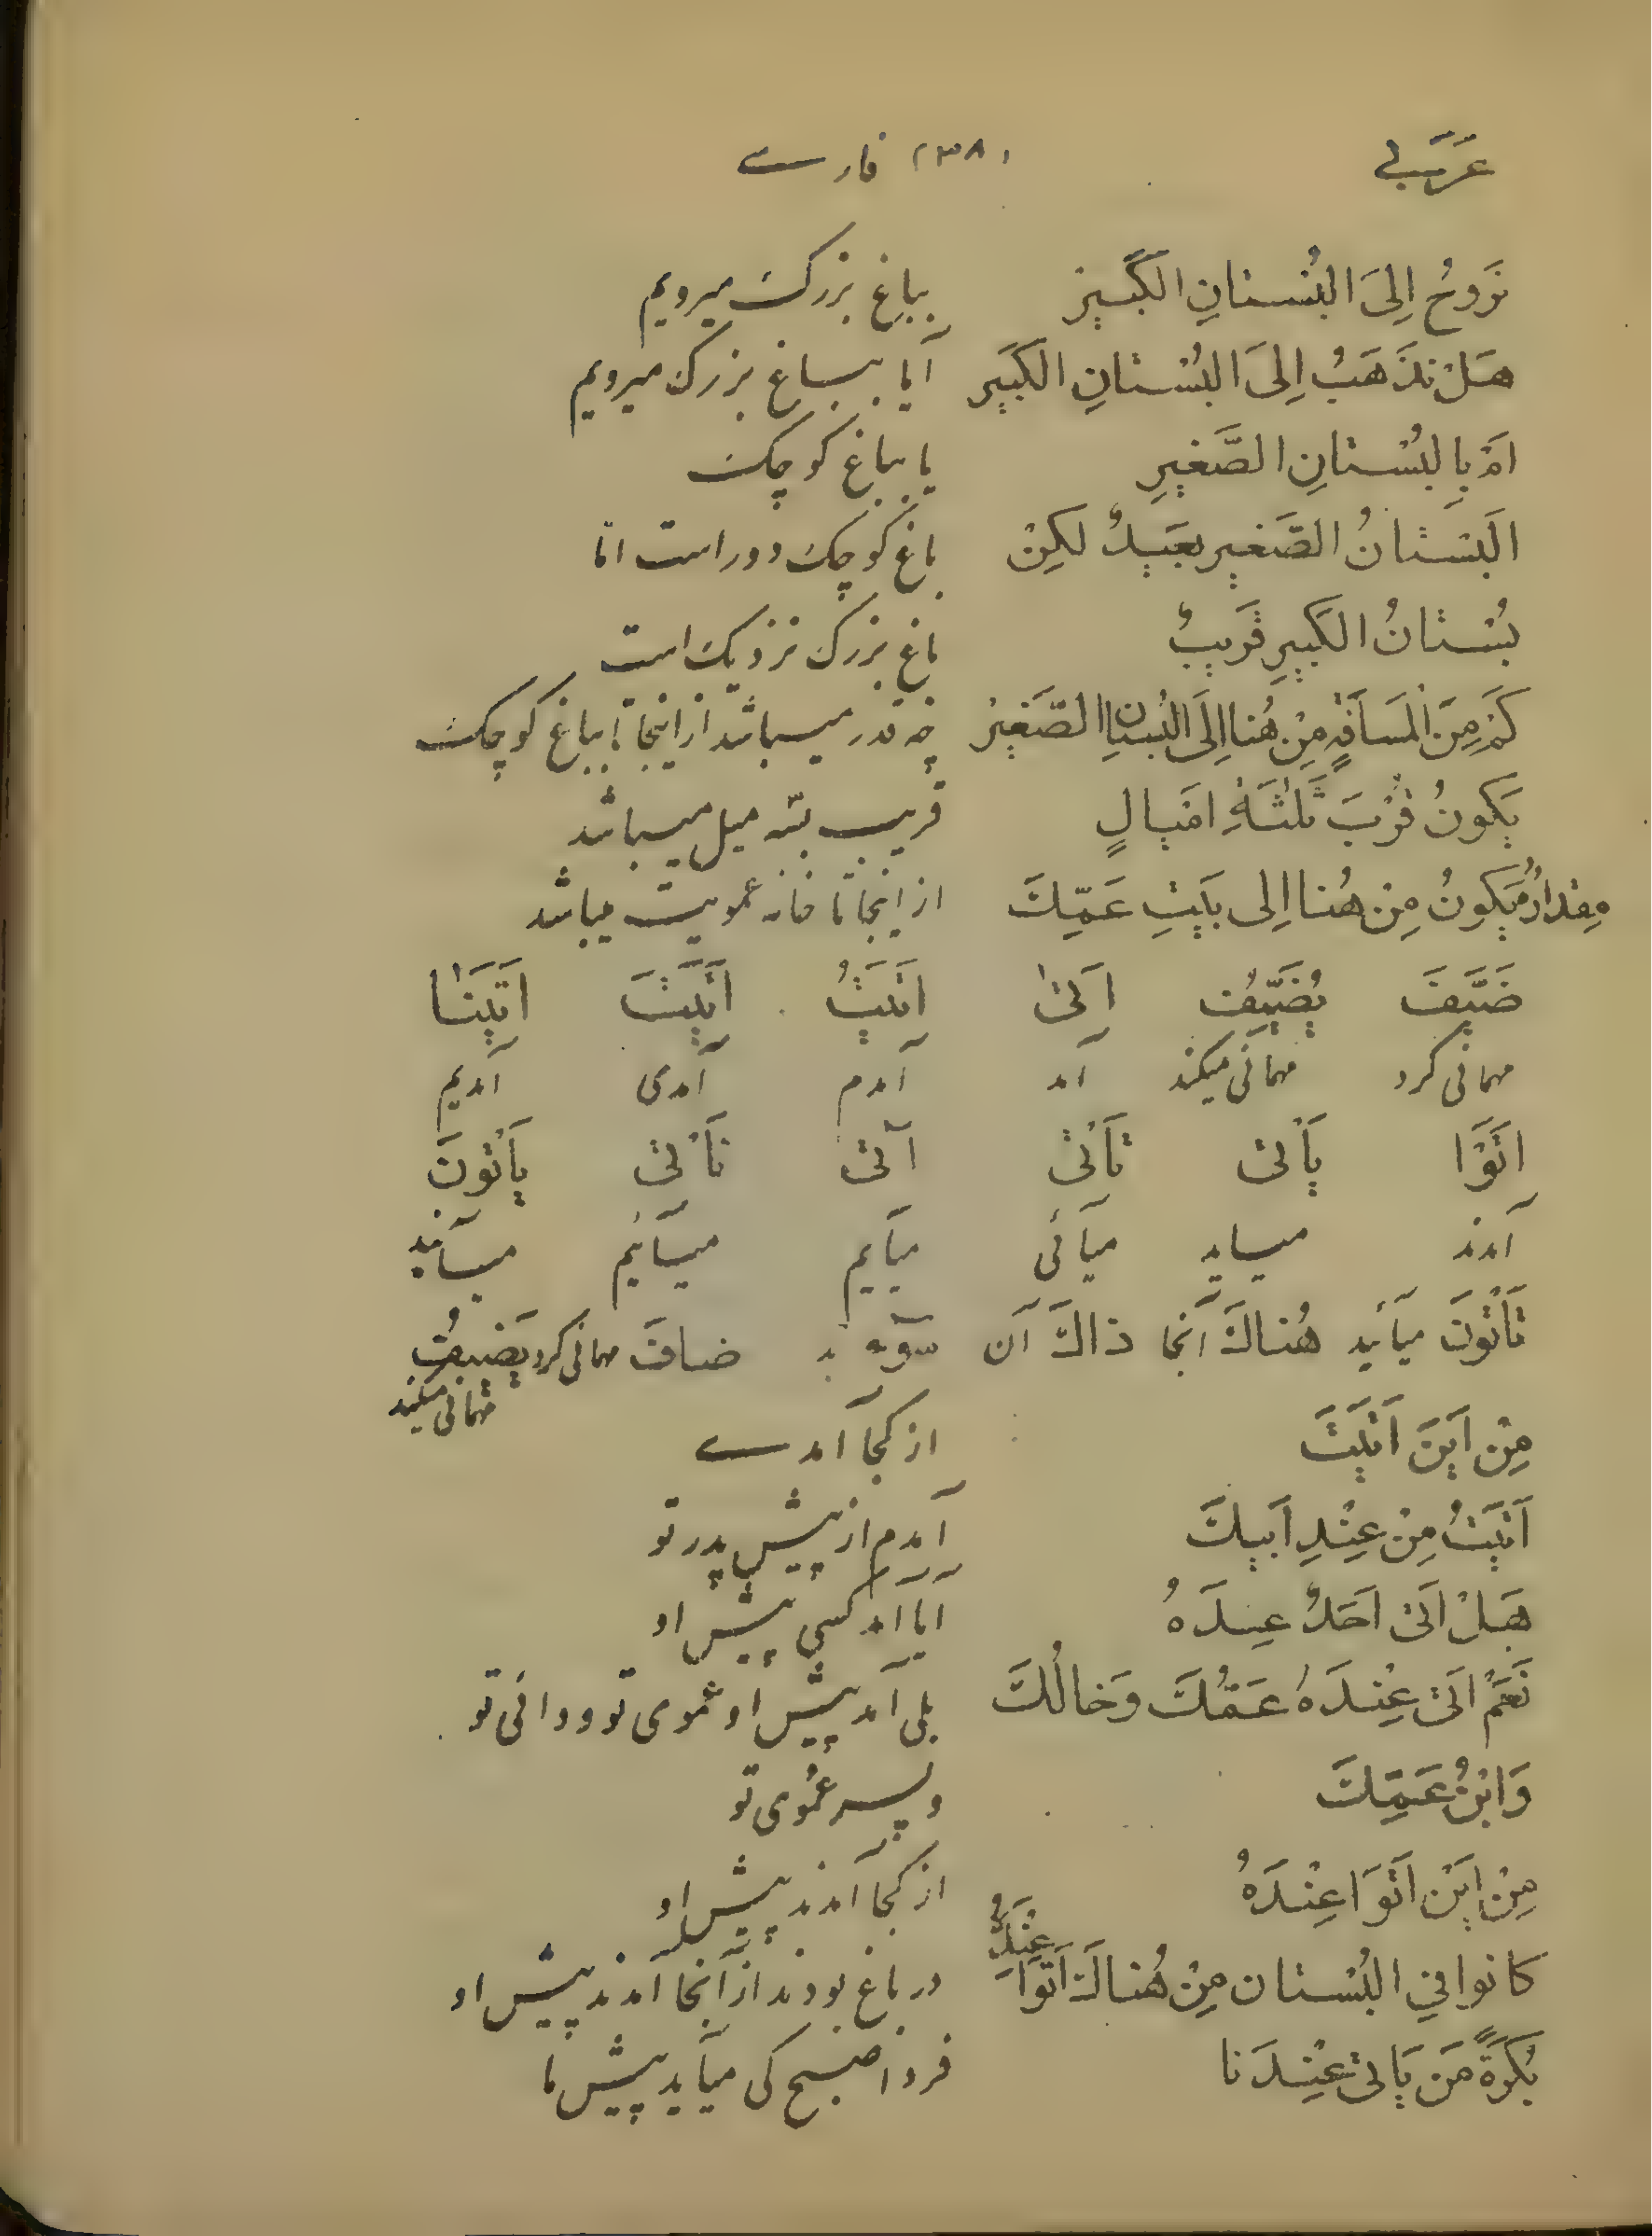 عَرَبی (۳۸) فارسے
نَروُحُ اِلیَ البُستانِ الكَبیرِ بباغ بزرک میرویم
هَلْ نَذهَبُ اِلیَ البُسْتانِ الكَبیرِ آیا بباغ بزرک میرویم
اَمْ بِالبُسْتانِ الصَّغیرِ یا بباغ کوچک
اَلبُسْتانُ الصَّغیرِ بعَیدٌ لكِنْ باغ کوچک دور است امّا
بُسْتانُ الكَبیرِ قَریبٌ باغ بزرک نزدیک است
كَمْ مِنَ المَسافَةِ مِنْ هُنا اِلَی البُستانِ الصَّغیرِ چه قدر میباشد از اینجا بباغ کوچک
یَكُونُ قُرْبَ ثَلٰثَةِ اَمْیالٍ قریب بسّه میل میباشد
مِقدارُ یَكونُ مِنْ هُنا اِلی بَیْتِ عَمِّكَ از اینجا تا خانه عمویت میباشد
ضَیَّفَ یُضَیِّفُ اَتیٰ اَتَیْتُ اَتَیْتَ اَتَیْنٰا
مهمانی کرد مهمانی میکند آمد آمدم آمدی آمدیم
اَتَوْا یَأْتی تَأْتی آتی نَأْتی یَأْتُونَ
آمدند میاید میآئی میآیم میآئیم میآیند
تَأْتُونَ میآئید هُناكَ آنجا ذاكَ آن ضافَ مهمانی کرد یَضیفُ
مهمانی میکند
مِنْ اَیْنَ اَتَیْتَ از کجا آمدے
اَتَیْتُ مِنْ عِنْدِ اَبیكَ آمدم از پیش پدر تو
هَلْ اَتیٰ اَحَدٌ عِنْدَهُ آیا آمد کسی پیش او
نَعَمْ اَتیٰ عِنْدَهُ عَمُّكَ وَخالُكَ بلی آمد پیش او عموی تو و دائی تو
وَابْنُ عَمِّكَ و پسر عموی تو
مِنْ اَیْنَ اَتَوَا عِنْدَهُ از کجا آمدند پیش او
كانوا فی البُسْتان مِنْ هُناكَ اَتَوا عِنْدَهُ در باغ بودند از آنجا آمدند پیش او
بُكْرَةً مَنْ یَأْتی عِنْدَنا فردا صبح کی میآید پیش ما